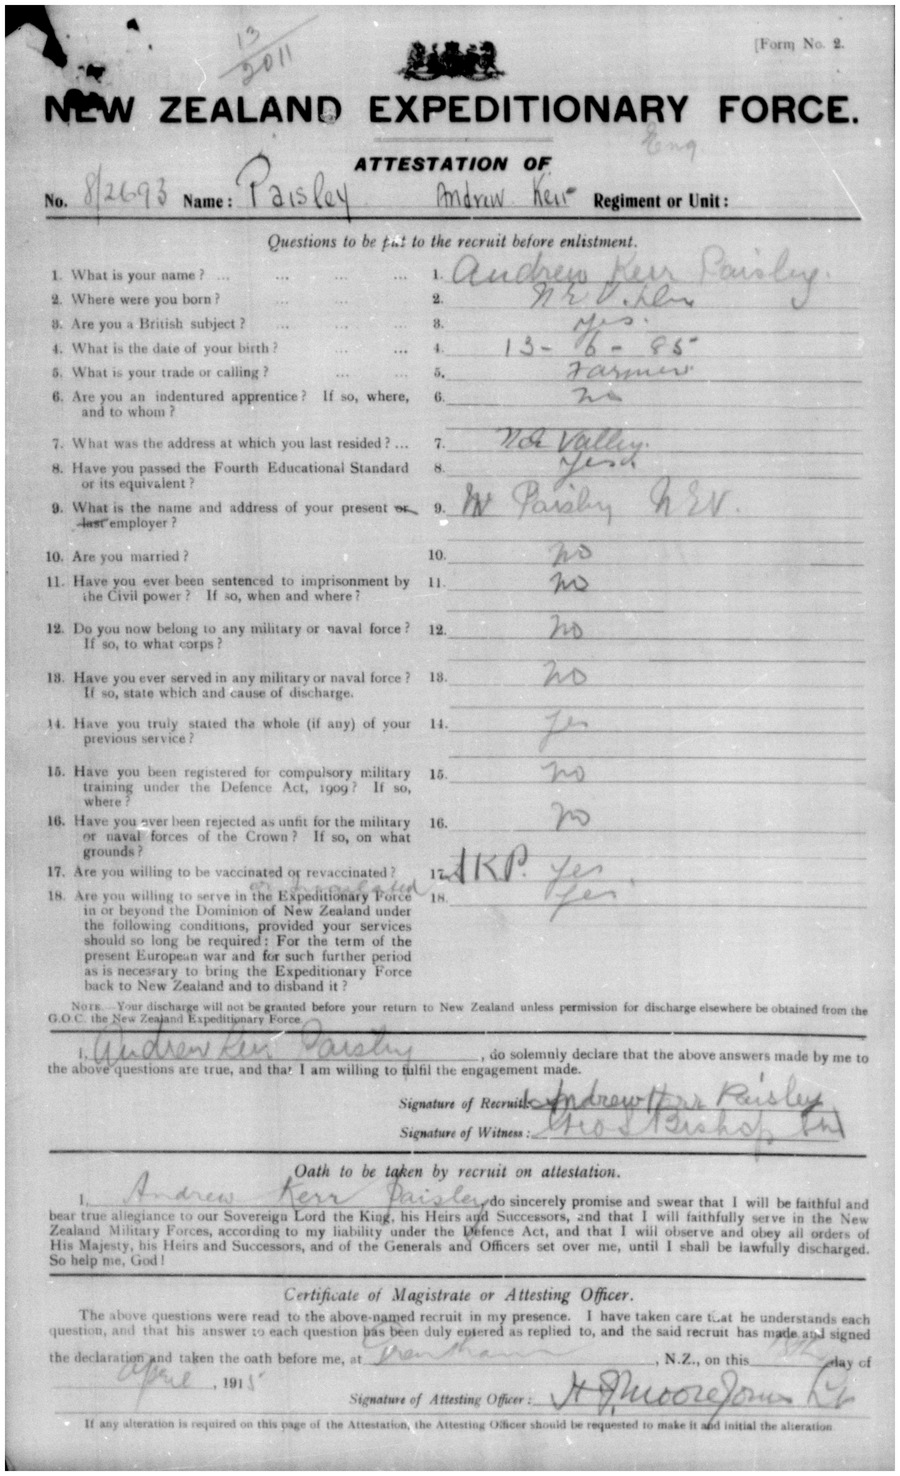 13/2011
[Form No. 2.
NEW ZEALAND EXPEDITIONARY FORCE.
Eng
ATTESTATION OF
No. 8/2693 Name: Paisley Andrew Kerr Regiment or Unit:
Questions to be put to the recruit before enlistment.
1. What is your name? ... ... ... ... 1. Andrew Kerr Paisley.
2. Where were you born? ... ... 2. N E V.
3. Are you a British subject? ... ... ... 3. yes.
4. What is the date of your birth? ... ... 4. 13 - 6 - 85
5. What is your trade or calling? ... ... 5. Farmer
6. Are you an indentured apprentice? If so, where, 6. No
and to whom?
7. What was the address at which you last resided? ... 7. Valley.
8. Have you passed the Fourth Educational Standard 8. yes
or its equivalent?
9. What is the name and address of your present or 9. Paisley N E V.
last employer?
10. Are you married? 10. no
11. Have you ever been sentenced to imprisonment by 11. No
the Civil power? If so, when and where?
12. Do you now belong to any military or naval force? 12. No
If so, to what corps?
13. Have you ever served in any military or naval force? 13. no
If so, state which and cause of discharge.
14. Have you truly stated the whole (if any) of your 14. yes
previous service?
15. Have you been registered for compulsory military 15. no
training under the Defence Act, 1909? If so,
where?
16. Have you ever been rejected as unfit for the military 16. no
or naval forces of the Crown? If so, on what
grounds?
17. Are you willing to be vaccinated or revaccinated? 17. AKP. yes
or inoculated
18. Are you willing to serve in the Expeditionary Force 18. yes
in or beyond the Dominion of New Zealand under
the following conditions, provided your services
should so long be required: For the term of the
present European war and for such further period
as is necessary to bring the Expeditionary Force
back to New Zealand and to disband it?
NOTE.—Your discharge will not be granted before your return to New Zealand unless permission for discharge elsewhere be obtained from the
G.O.C. the New Zealand Expeditionary Force.
I, Andrew Kerr Paisley, do solemnly declare that the above answers made by me to
the above questions are true, and that I am willing to fulfil the engagement made.
Signature of Recruit: Andrew Kerr Paisley
Signature of Witness: Geo S Bishop
Oath to be taken by recruit on attestation.
I, Andrew Kerr Paisley, do sincerely promise and swear that I will be faithful and
bear true allegiance to our Sovereign Lord the King, his Heirs and Successors, and that I will faithfully serve in the New
Zealand Military Forces, according to my liability under the Defence Act, and that I will observe and obey all orders of
His Majesty, his Heirs and Successors, and of the Generals and Officers set over me, until I shall be lawfully discharged.
So help me, God!
Certificate of Magistrate or Attesting Officer.
The above questions were read to the above-named recruit in my presence. I have taken care that he understands each
question, and that his answer to each question has been duly entered as replied to, and the said recruit has made and signed
the declaration and taken the oath before me, at Trentham, N.Z., on this day of
April, 1915
Signature of Attesting Officer: H J Moore Jones Lt
If any alteration is required on this page of the Attestation, the Attesting Officer should be requested to make it and initial the alteration.